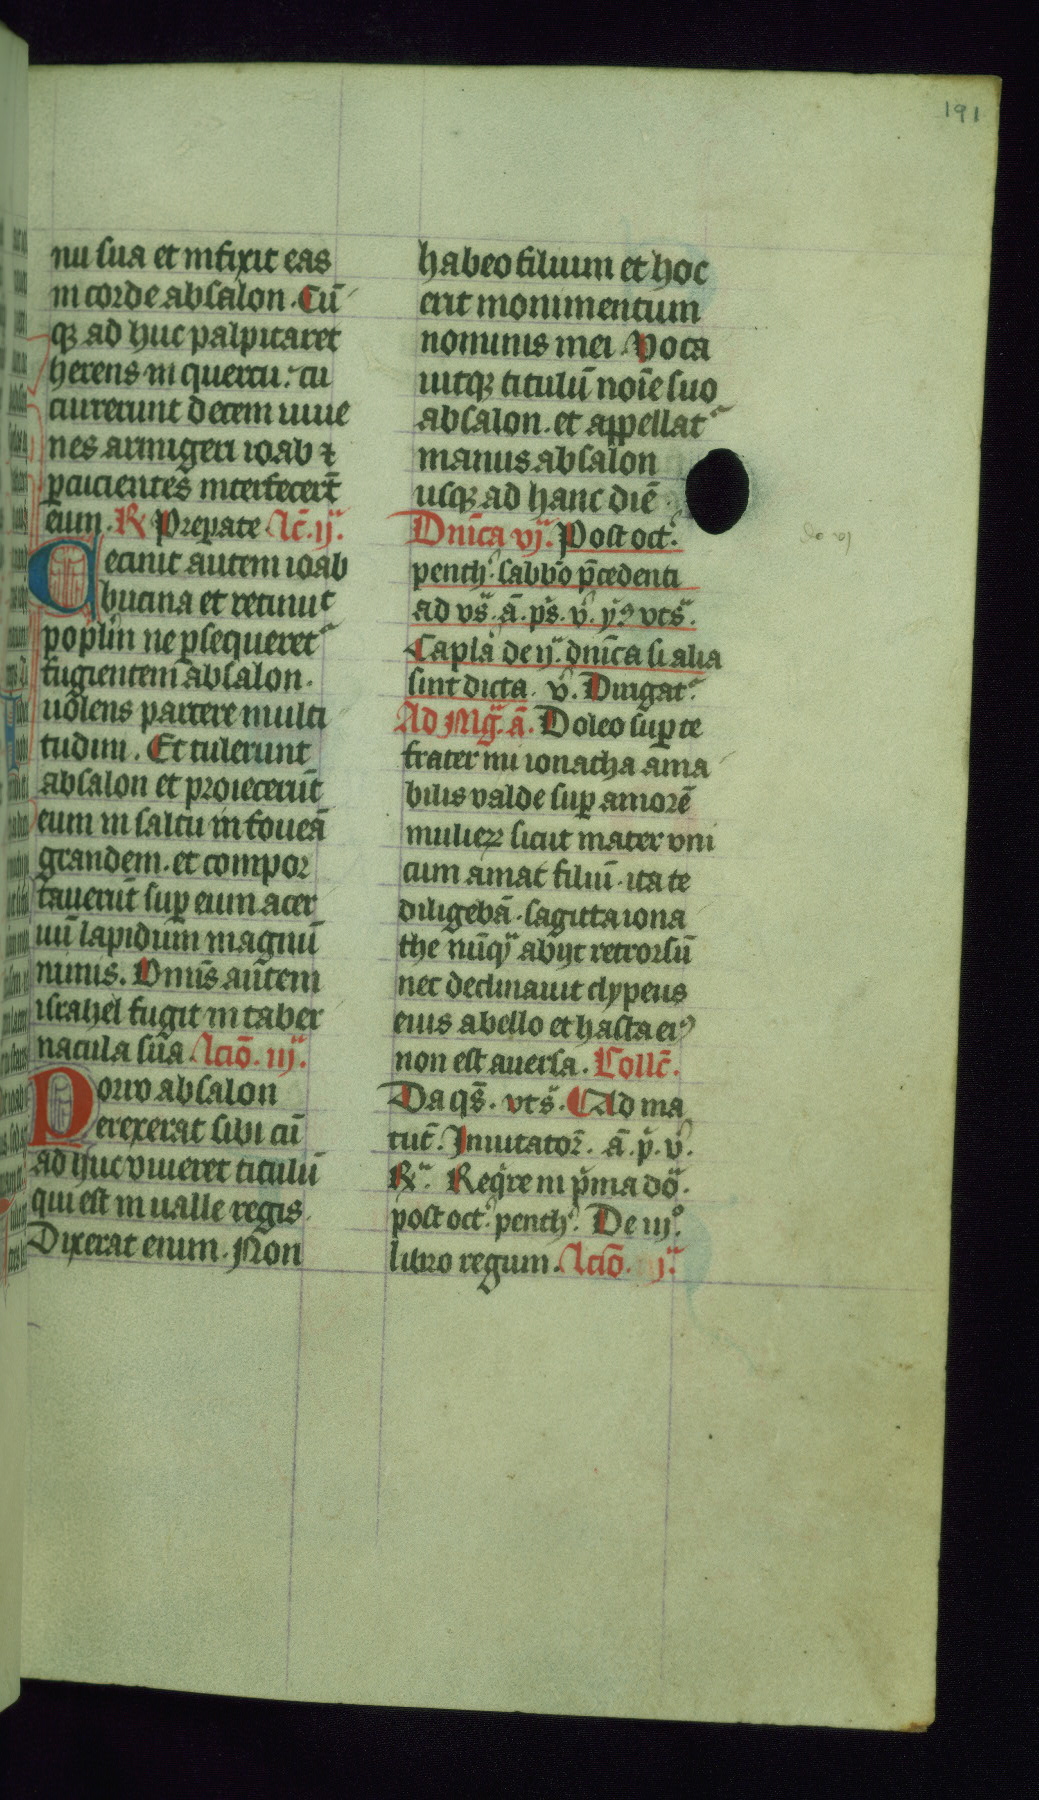 191
nu sua et infixit eas
in corde absalon. Cū
q₃ ad huc palpitaret
herens in quercu. cu
currerunt decem iuue
nes armigeri ioab ⁊
ꝑcucientes interfecer̄t
eum. R Preparate Lc̄. ij.
Cecinit autem ioab
bucina et retinuit
popl̄m ne ꝑsequeret᷑
fugientem absalon.
uolens parcere multi
tudini. Et tulerunt
absalon et proiecerūt
eum in saltu in foueā
grandem. et compor
tauerūt suꝑ eum acer
uū lapidum magnū
nimis. Omīs autem
israhel fugit in taber
nacula sua Lc̄io. iij.
Porro absalon
erexerat sibi cū
ad huc viueret titulū
qui est in ualle regis.
Dixerat enim. Non
habeo filium et hoc
erit monimentum
nominis mei. Voca
uitq₃ titulū noīe suo
absalon. et appellat᷑
manus absalon
usq₃ ad hanc diē
Dn̄ica vj. Post oct.
penth. sabb̄o p̄cedenti
ad vs̄. ā. ps̄. v̄. yꝰ vts̄.
Capl̄a de ij. dn̄ica si alia
sint dicta. v̄. Dirigat᷑.
Ad Mg̅. ā. Doleo suꝑ te
frater mi ionatha ama
bilis valde suꝑ amorē
mulieꝝ sicut mater vni
cum amat filiū. ita te
diligebā. sagitta iona
the nūqᵃ abijt retrorsū
nec declinauit clypeus
eius a bello et hasta eiꝰ
non est auersa. Coll̄c.
Da qs̄. vts̄. Ad ma
tut̄. Inuitator̄. ā. p̄. v̄.
R. Req̄re in p̄ma do.
post oct. penth. De iij.
libro regum. Lc̄io. j.